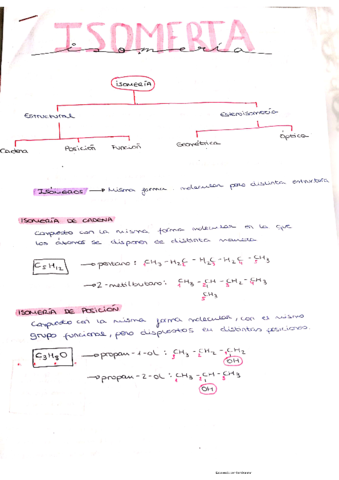 ISOMERIA
isomería
isomería
Estructural
Estereoisomería
Cadena
Posición
Función
Geométrica
Óptica
ISÓMEROS → Misma forma molecular pero distinta estructura
ISOMERÍA DE CADENA
Compuesto con la misma forma molecular en la que
los átomos se disponen de distinta manera
C5H12 → pentano: CH3 - H2C - H2C - H2C - CH3
→ 2-metilbutano: CH3 - CH - CH2 - CH3
CH3
ISOMERÍA DE POSICIÓN
Compuesto con la misma forma molecular, con el mismo
grupo funcional, pero dispuestos en distintas posiciones.
C3H8O → propan-1-ol: CH3 - CH2 - CH2
OH
→ propan-2-ol: CH3 - CH - CH3
OH